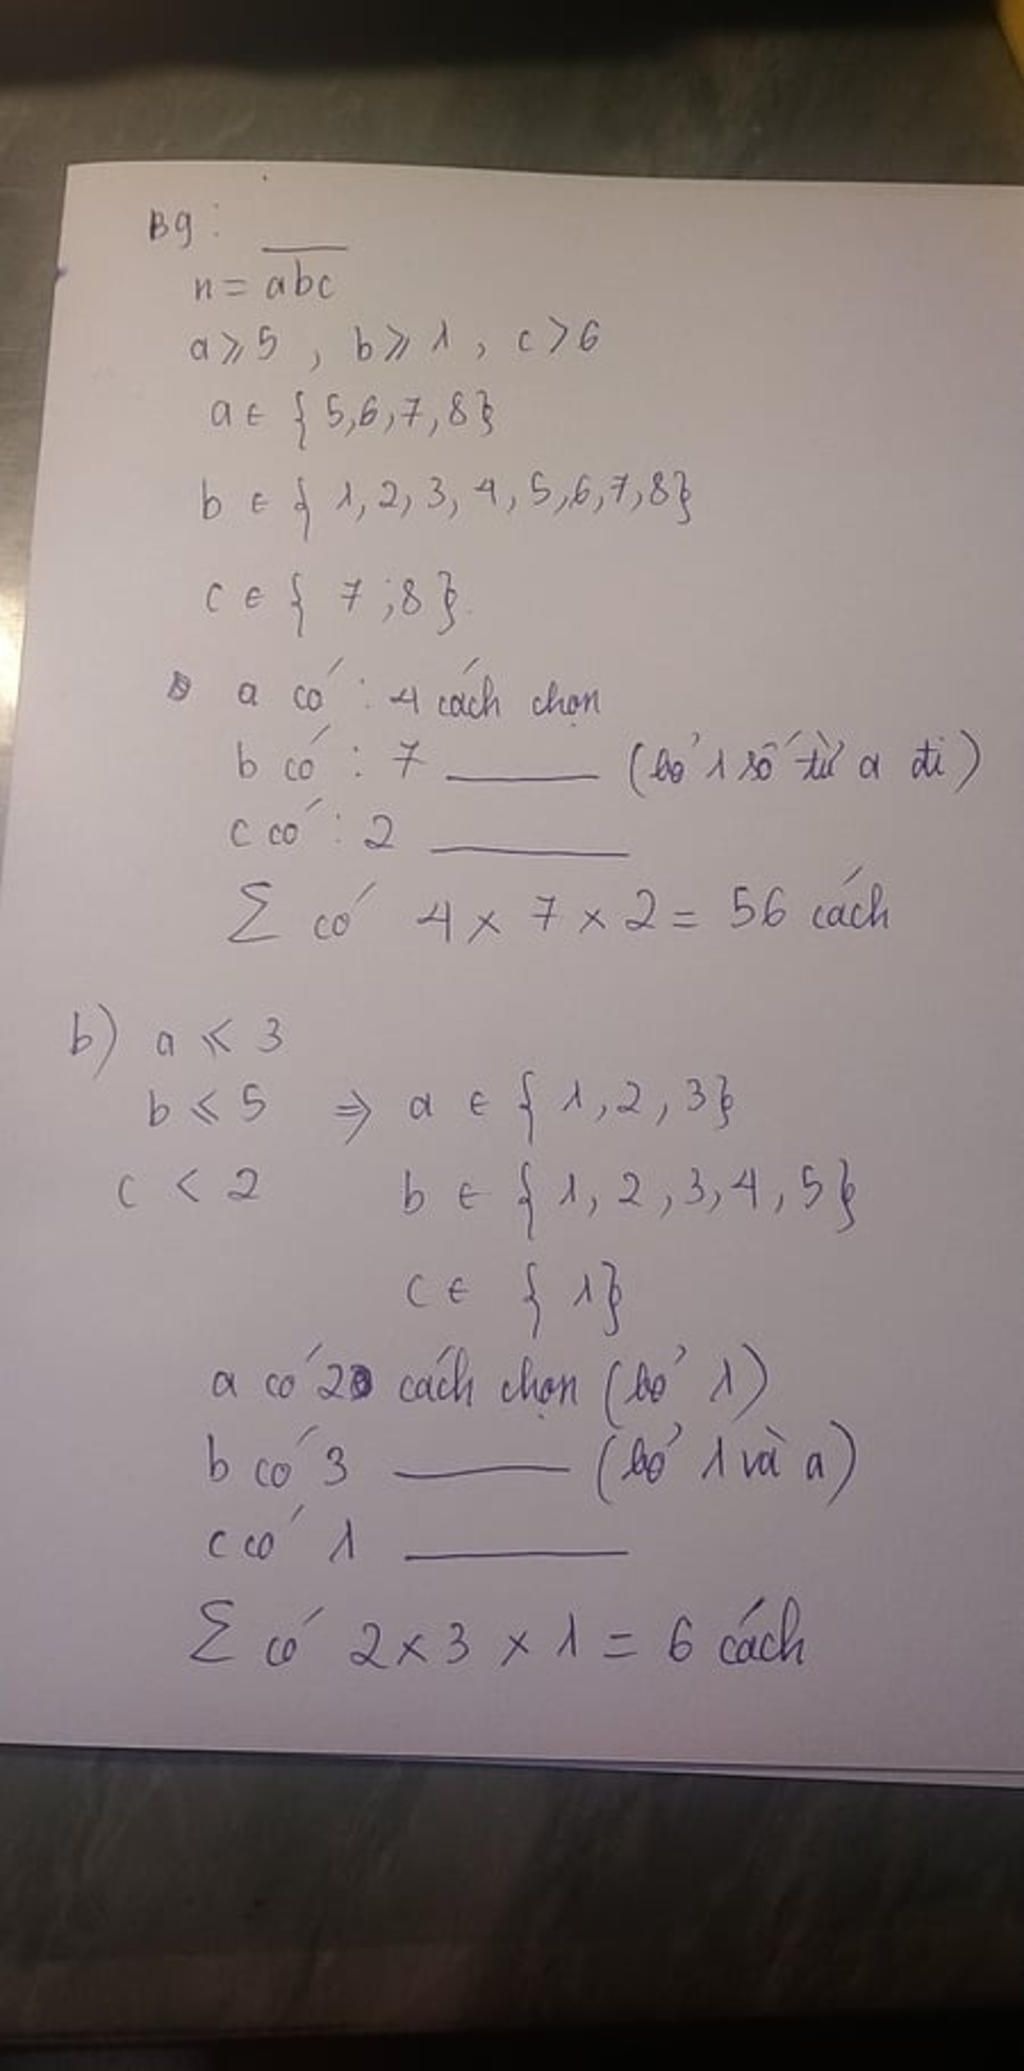 Bg:
n = abc
a ⩾ 5 , b ⩾ 1 , c > 6
a ∈ { 5,6,7,8}
b ∈ { 1, 2, 3, 4, 5,6,7,8}
c ∈ { 7 ;8 }.
a có : 4 cách chọn
b có : 7 ——— (bỏ 1 số từ a đi)
c có : 2 ———
Σ có 4 × 7 × 2 = 56 cách
b) a ⩽ 3
b ⩽ 5 ⇒ a ∈ { 1, 2, 3}
c < 2 b ∈ { 1, 2, 3, 4, 5}
c ∈ { 1}
a có 2 cách chọn (bỏ 1)
b có 3 ——— (bỏ 1 và a)
c có 1 ———
Σ có 2 × 3 × 1 = 6 cách